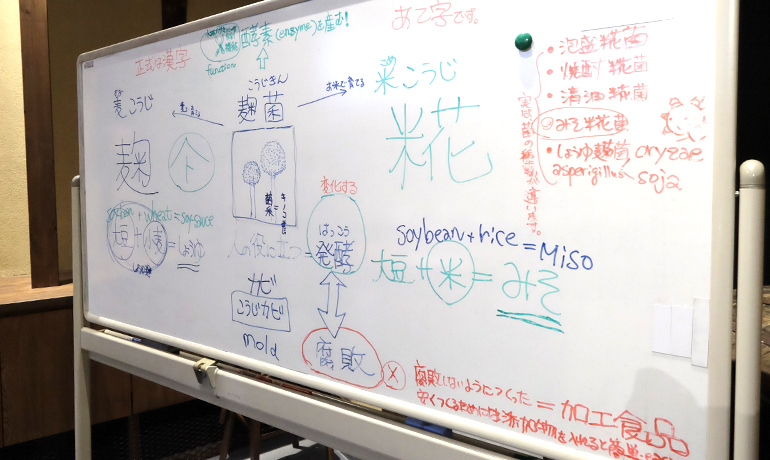 正式な漢字
酵素(enzyme)を産む!
function
あて字です。
麦こうじ
こうじきん
麹菌
お米で育てる
こめ
米こうじ
麹
糀
菌糸=キノコ
変化する
soybean + wheat = soysauce
大豆+小麦=しょうゆ
人の役に立つ=
はっこう
発酵
soybean + rice = Miso
大豆+米=みそ
カビ
こうじカビ
mold
腐敗
×
・泡盛糀菌
・焼酎糀菌
・清酒糀菌
みそ糀菌
・しょうゆ麹菌
oryzae
asperigillus
soja
実は菌の種類が違います。
腐敗しないようにつくった = 加工食品
安くつくるために
添加物を入れると簡単